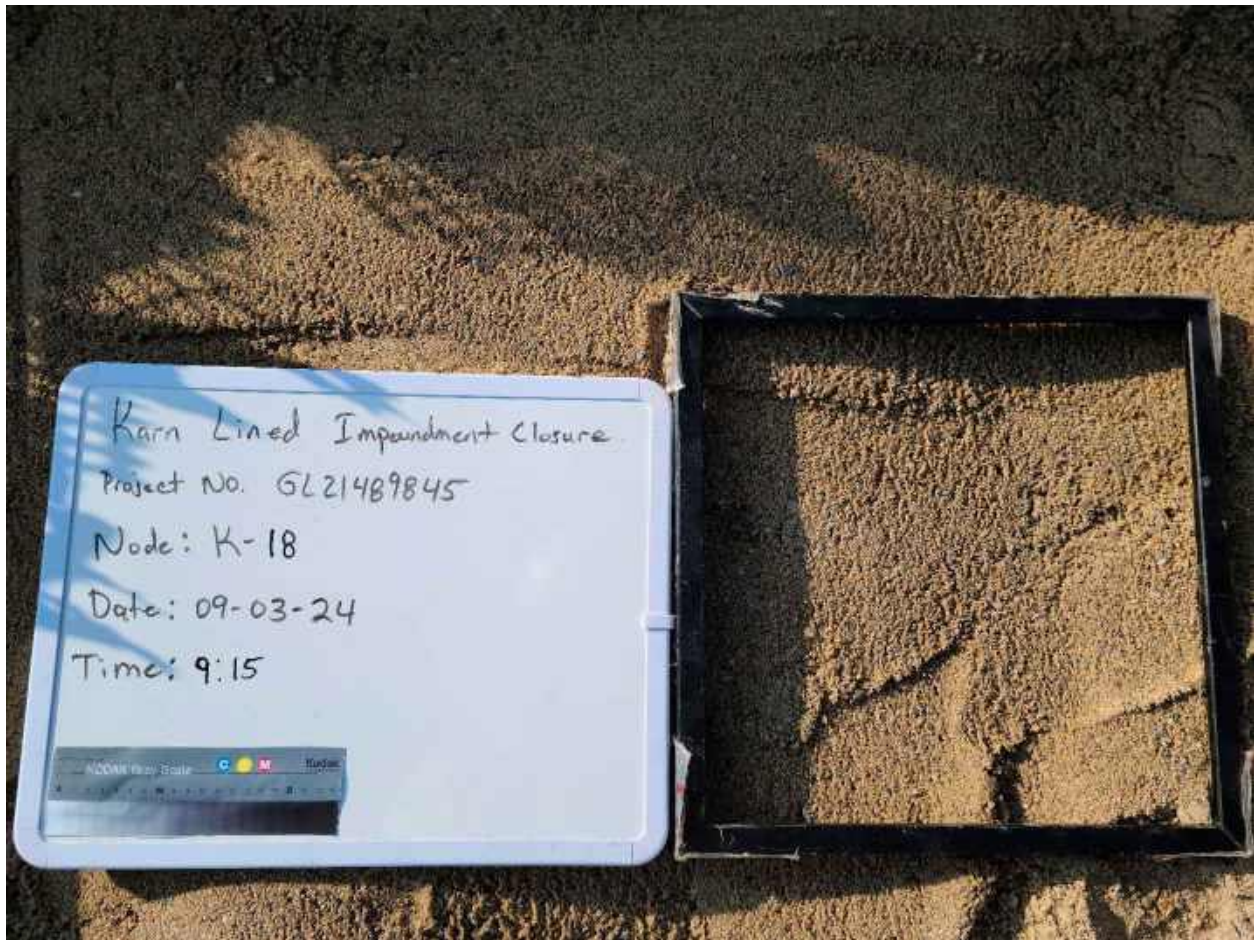 Karn Lined Impoundment Closure
Project No. GL21489845
Node: K-18
Date: 09-03-24
Time: 9:15
KODAK Gray Scale C M Kodak